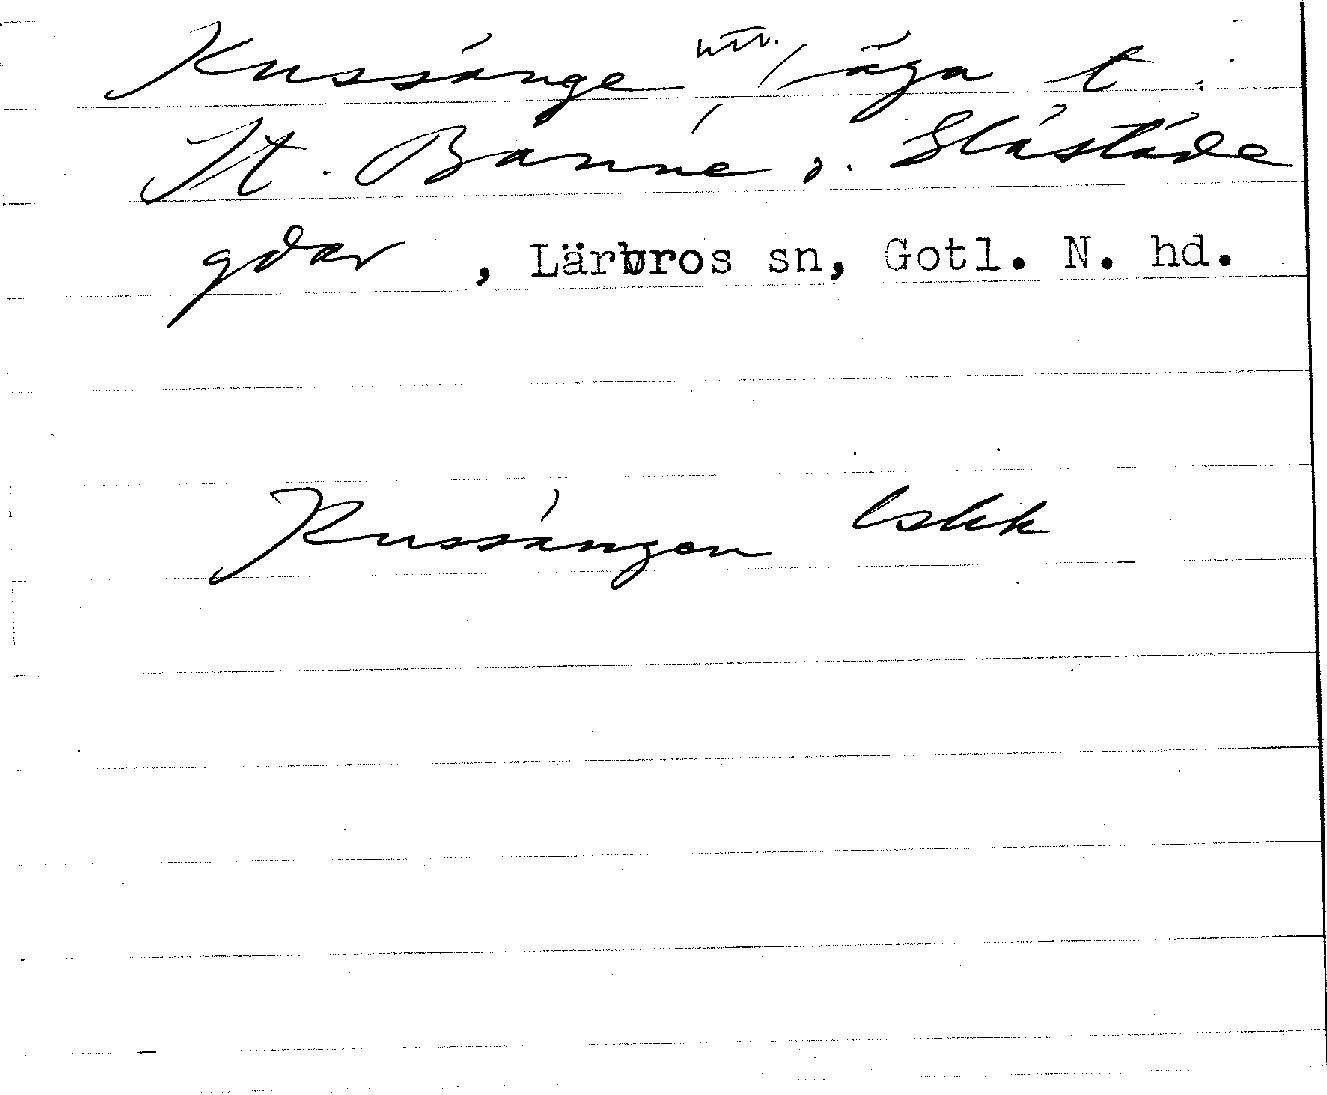 Kussänge, äga t.
St. Banne o. Slästäde
gdar, Lärbros sn, Gotl. N. hd.
Kussängen